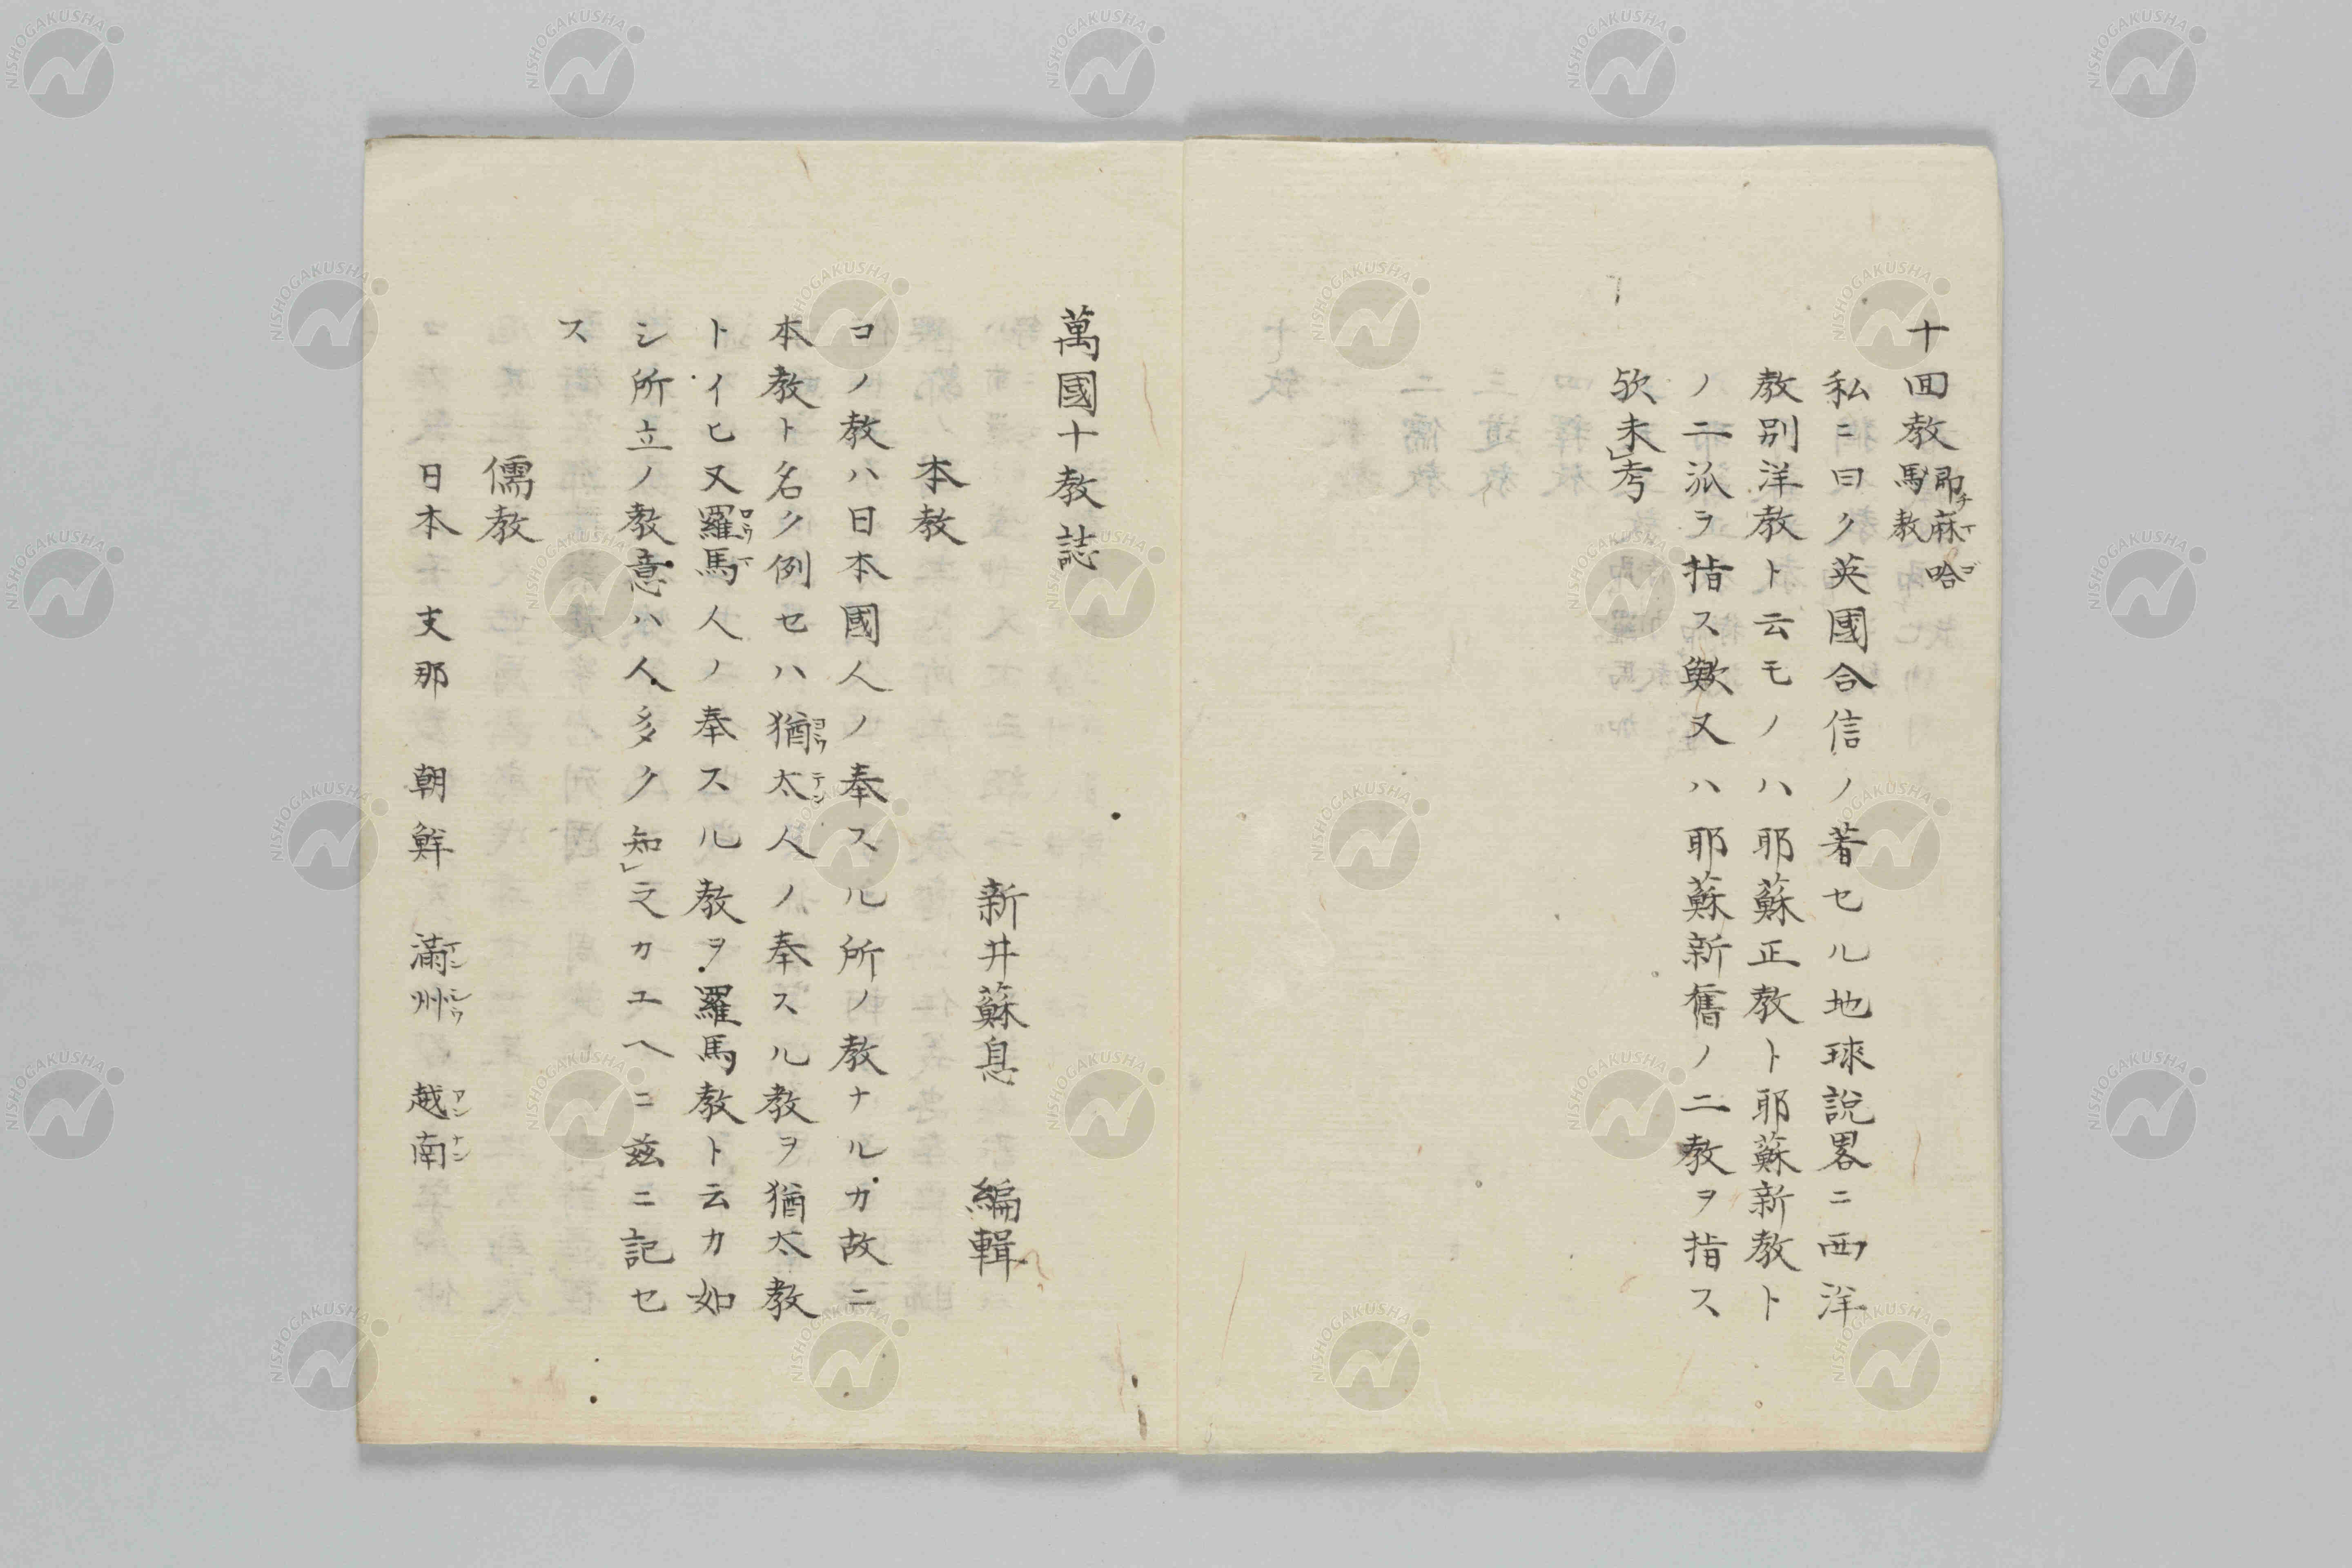 十回教 即チ麻哈
馬教
私ニ曰ク英國合信ノ著セル地球說畧ニ西洋
教別洋教ト云モノハ耶蘇正教ト耶蘇新教ト
ノ二派ヲ指ス歟又ハ耶蘇新舊ノ二教ヲ指ス
欤未考
萬國十教誌
新井蘇息 編輯
本教
コノ教ハ日本國人ノ奉スル所ノ教ナルカ故ニ
本教ト名ク例セハ猶太人ノ奉スル教ヲ猶太教
トイヒ又羅馬人ノ奉スル教ヲ羅馬教ト云カ如
シ所立ノ教意ハ人多ク知之カユヘニ茲ニ記セ
ス
儒教
日本 支那 朝鮮 滿州 越南
NISHOGAKUSHA